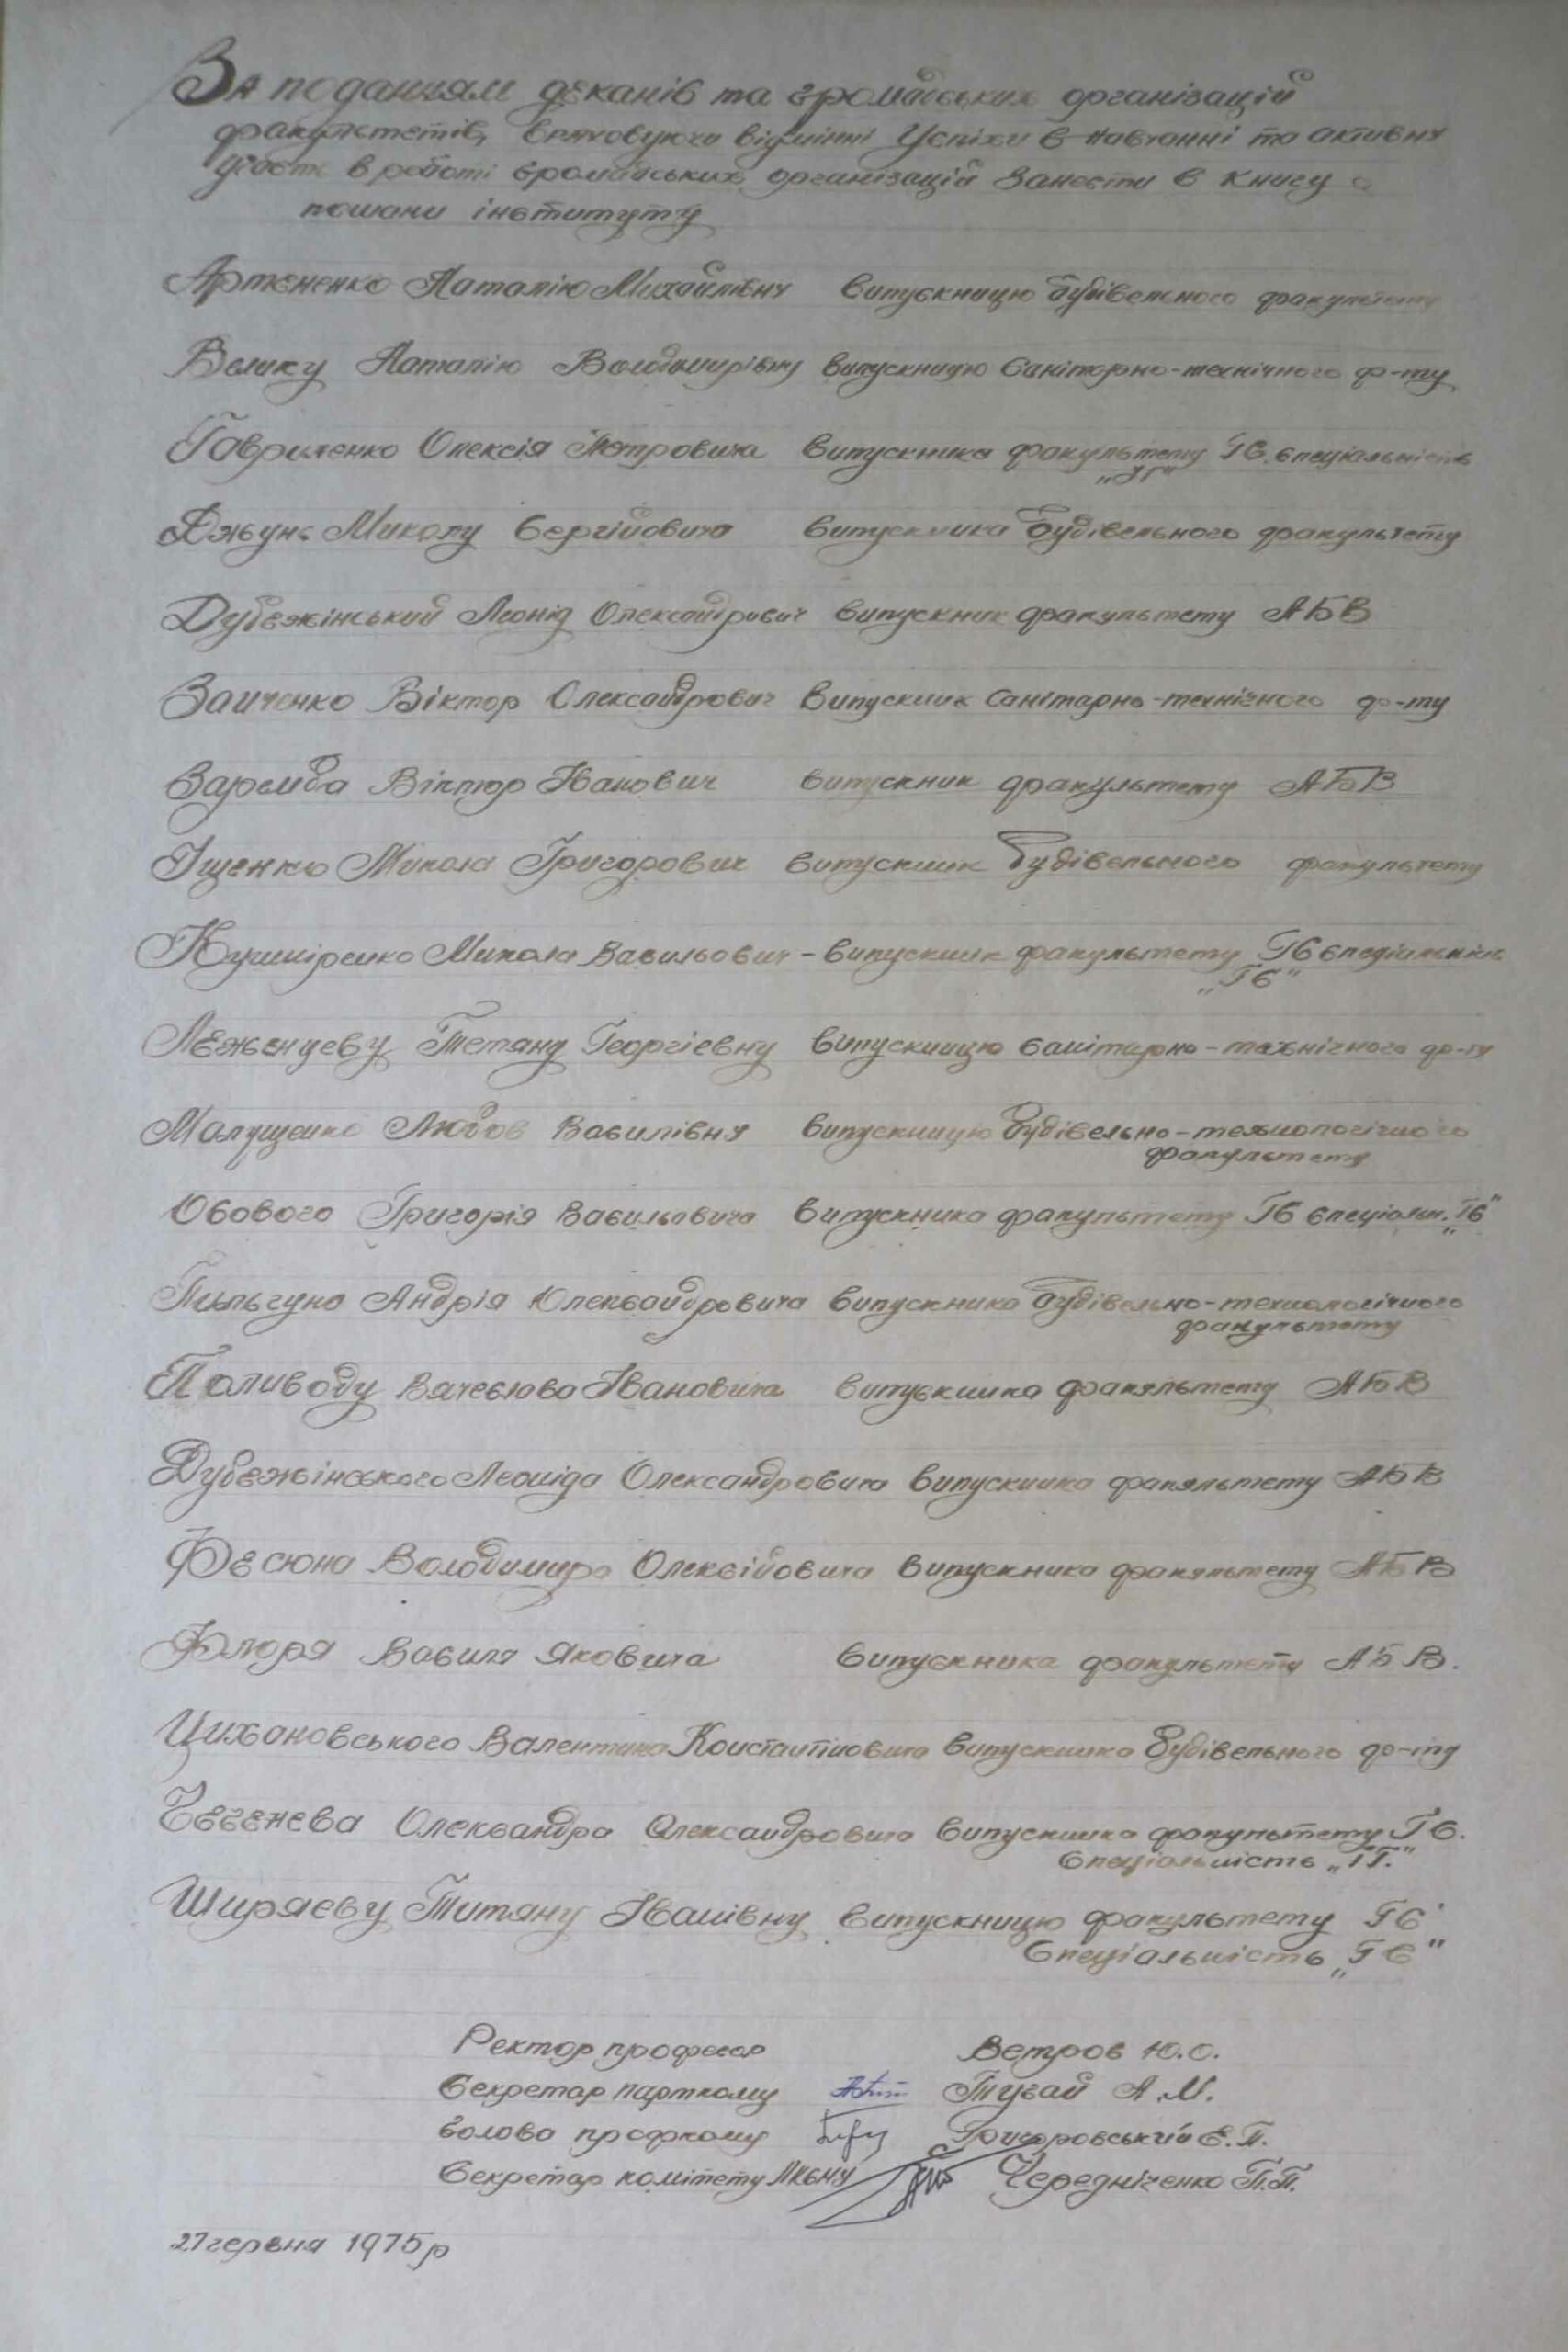 За поданням деканів та громадських організацій
факультетів, враховуючи відмінні успіхи в навчанні та активну
участь в роботі громадських організацій занести в книгу
пошани інституту
Артененко Наталію Михайлівну випускницю будівельного факультету
Велику Наталію Володимирівну випускницю санітарно-технічного ф-ту
Гавриленко Олексія Петровича випускника факультету ГС. спеціальність
Миколу Сергійовича випускника будівельного факультету
Дубежінський Леонід Олександрович випускник факультету АБВ
Заиченко Віктор Олександрович випускник санітарно-технічного ф-ту
Заремба Віктор Іванович випускник факультету АБВ
Іщенко Микола Григорович випускник будівельного факультету
Кушніренко Микола Васильович - випускник факультету ГС спеціальність
„ГС"
Леженцеву Тетяну Георгієвну випускницю санітарно-технічного ф-ту
Малущенко Любов Василівну випускницю будівельно-технологічного
факультету
Обового Григорія Васильовича випускника факультету ГС спеціальн. „ГС"
Пильгуна Андрія Олександровича випускника будівельно-технологічного
факультету
Поливоду Вячеслава Івановича випускника факультету АБВ
Дубежінського Леоніда Олександровича випускника факультету АБВ
Фесюна Володимира Олексійовича випускника факультету АБВ
Флоря Василя Яковича випускника факультету АБВ.
Цихановського Валентина Константиновича випускника будівельного ф-ту
Чегенева Олександра Олександровича випускника факультету ГС.
Спеціальність „ГГ."
Ширяєву Титяну Іванівну випускницю факультету ГС
Спеціальність „ГС"
Ректор професор Ветров Ю.О.
Секретар парткому Тугай А.М.
Голова профкому Григоровський Е.П.
Секретар комітету ЛКСМУ Чередніченко П.П.
27 червня 1975р